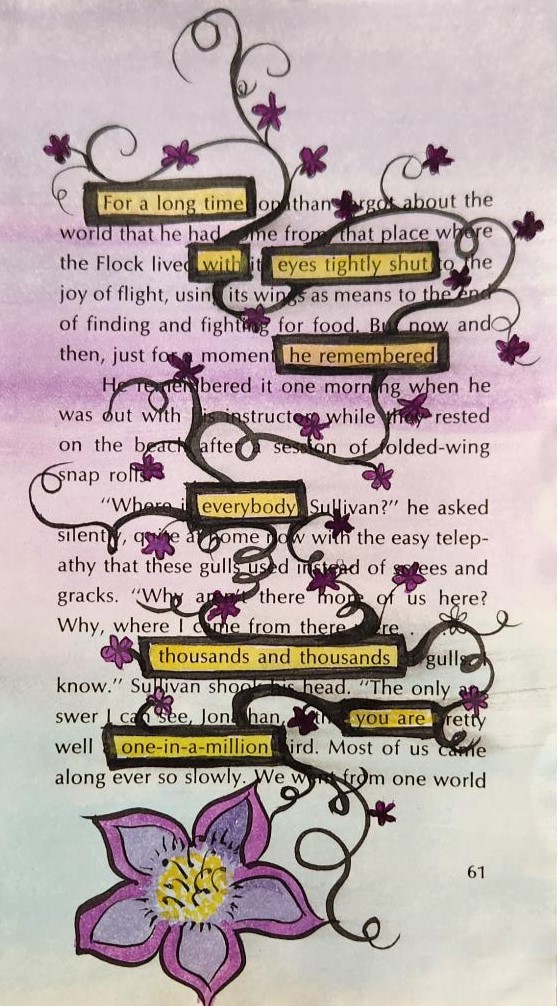 For a long time Jonathan forgot about the
world that he had come from, that place where
the Flock lived with its eyes tightly shut to the
joy of flight, using its wings as means to the end
of finding and fighting for food. But now and
then, just for a moment, he remembered
He remembered it one morning when he
was out with his instructor, while they rested
on the beach after a session of folded-wing
snap rolls.
"Where is everybody Sullivan?" he asked
silently, quite at home now with the easy telep-
athy that these gulls used instead of screes and
gracks. "Why aren't there more of us here?
Why, where I came from there were . .
thousands and thousands gulls
know." Sullivan shook his head. "The only an-
swer I can see, Jonathan, is that you are pretty
well one-in-a-million bird. Most of us came
along ever so slowly. We went from one world
61